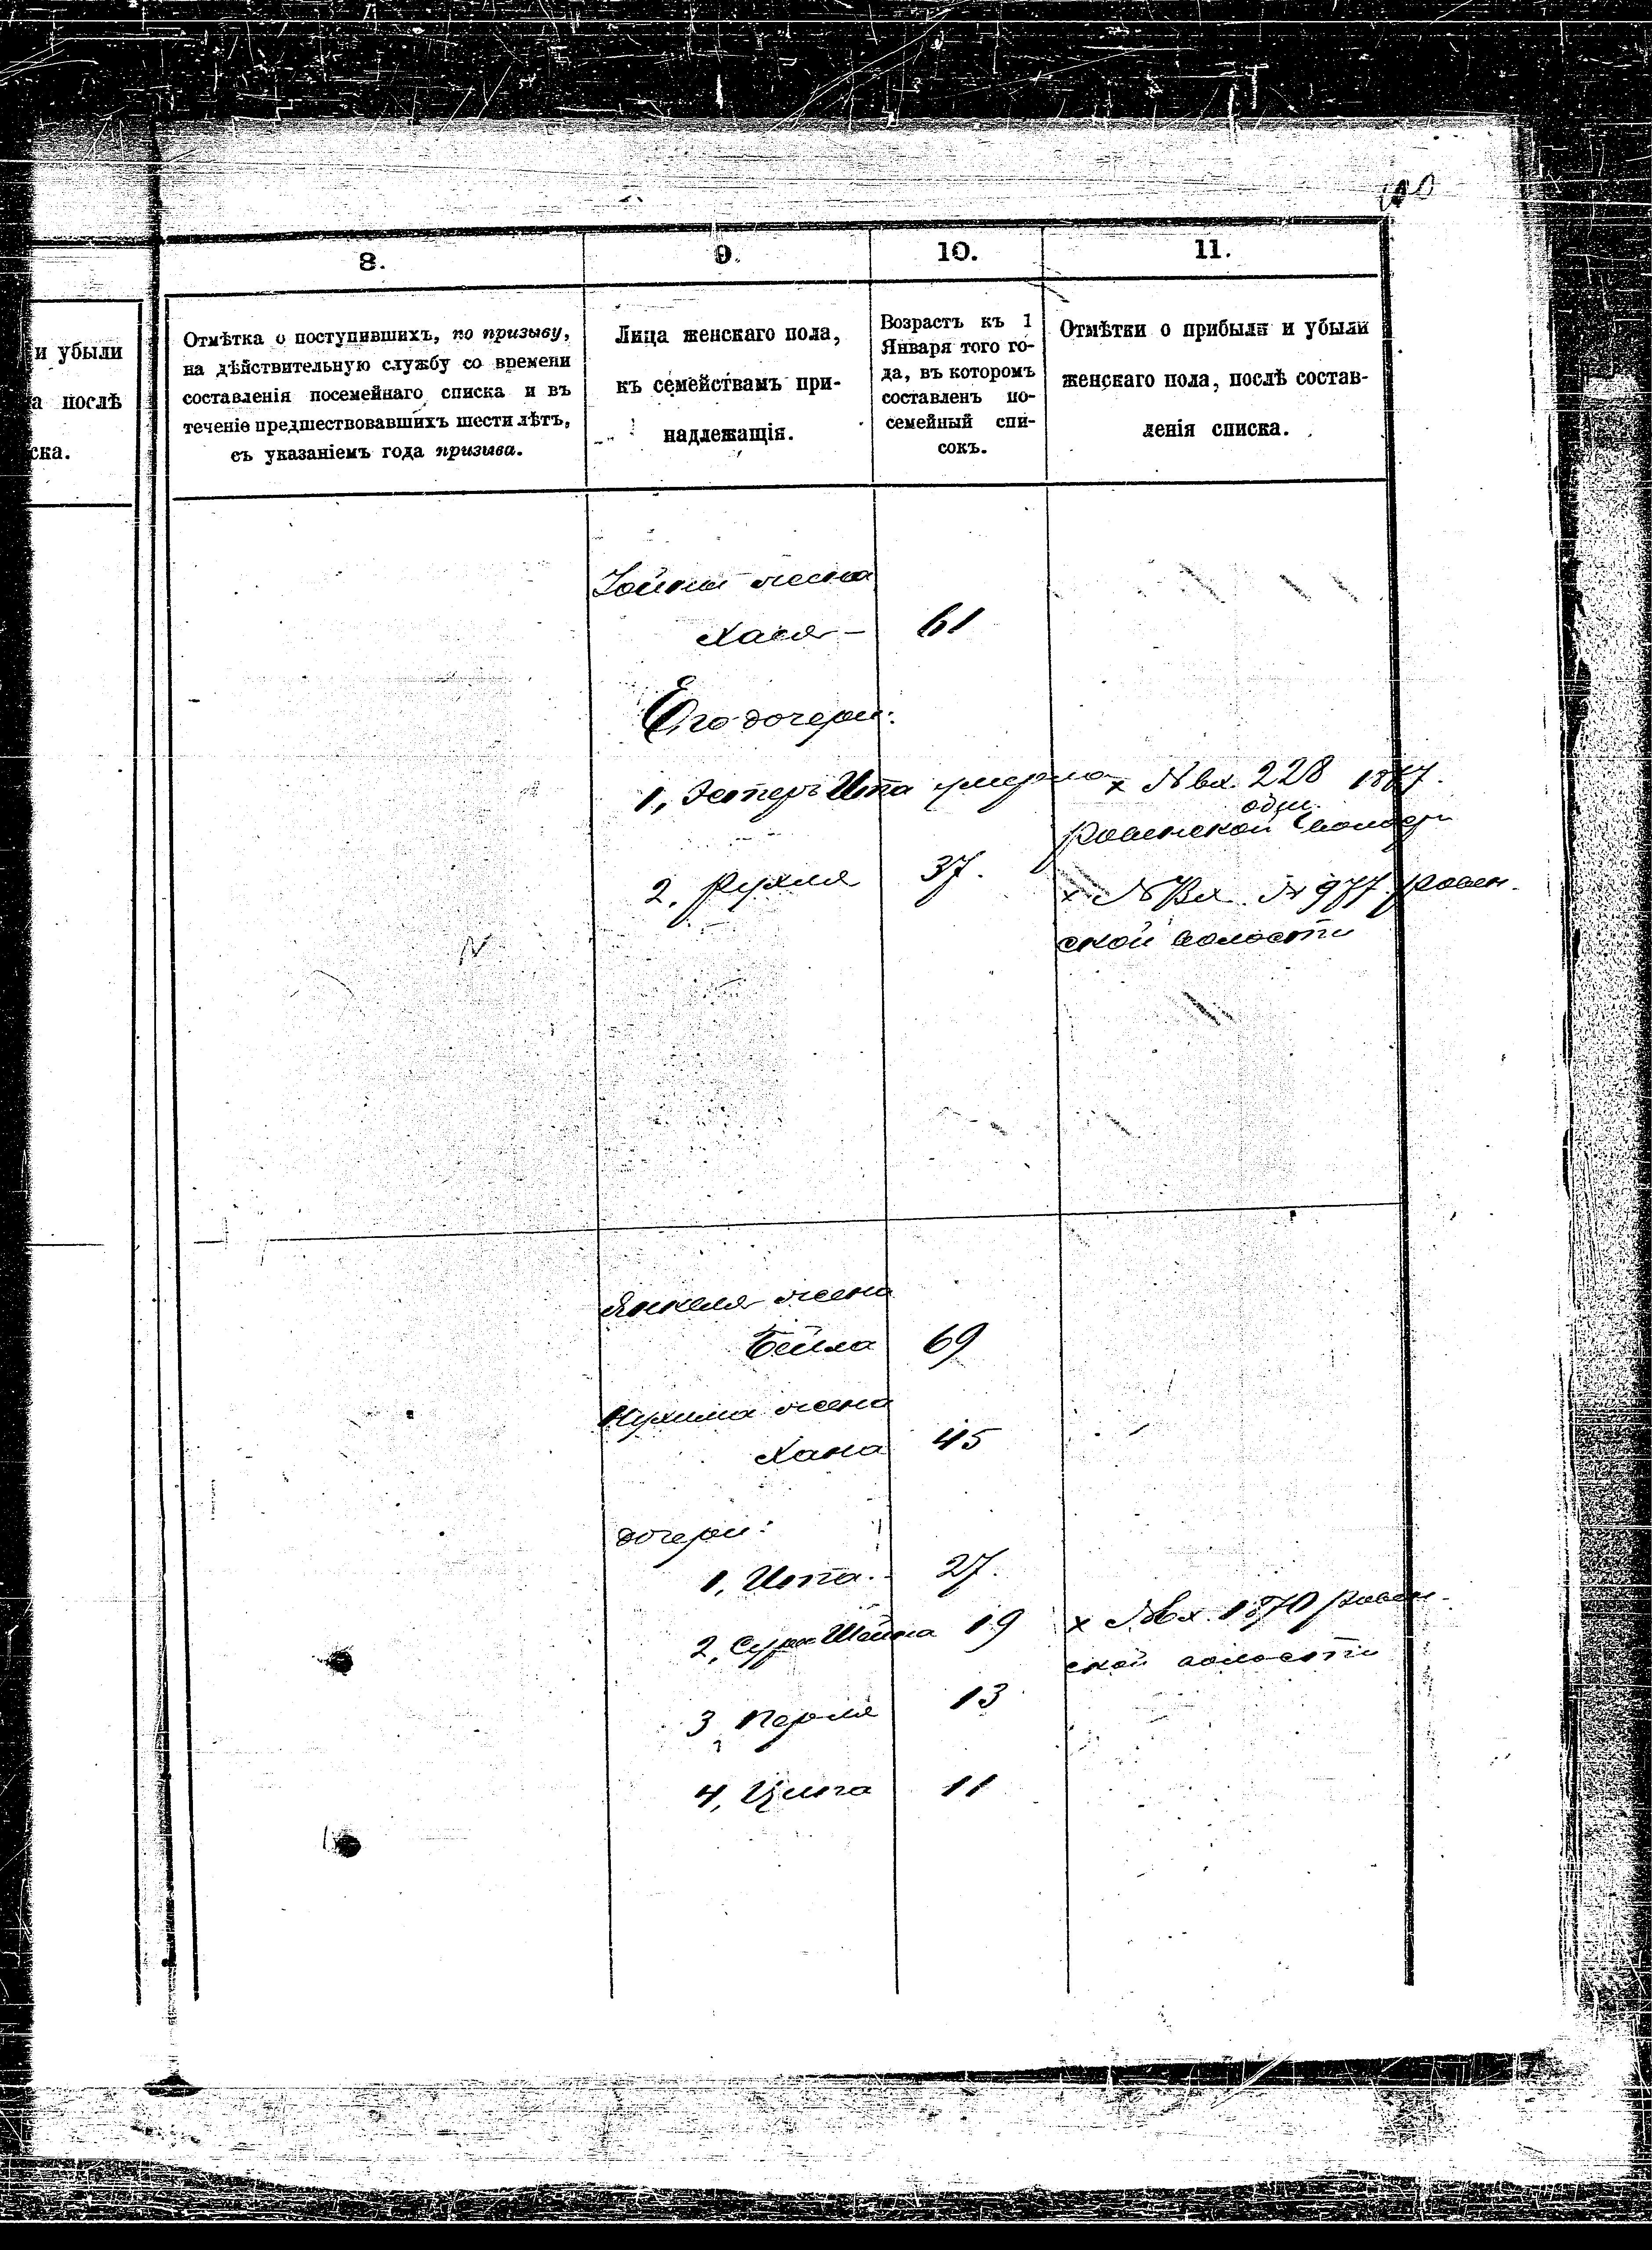 100
8.
9.
10.
11.
и убыли
а послѣ
ска.
Отмѣтка о поступившихъ, по призыву,
на дѣйствительную службу со времени
составленія посемейнаго списка и въ
теченіе предшествовавшихъ шести лѣтъ,
съ указаніемъ года призыва.
Лица женскаго пола,
къ семействамъ при-
надлежащія.
Возрастъ къ 1
Января того го-
да, въ которомъ
составленъ по-
семейный спи-
сокъ.
Отмѣтки о прибыли и убыли
женскаго пола, послѣ состав-
ленія списка.
жена
Хася - 61
Его дочери:
1, Эстеръ Ита умерла х № вх. 228 1877.
общ.
ровенской
2. Рухля 37. х № Вх. № 977. ровен-
ской волости
Янкеля жена
Бейла 69
Нухима жена
Хана 45
дочери:
1, Ита. 27.
2, Сура Шейна 19 х № вх. 1870 ровен-
ской волости
3 Перля 13
4, 11